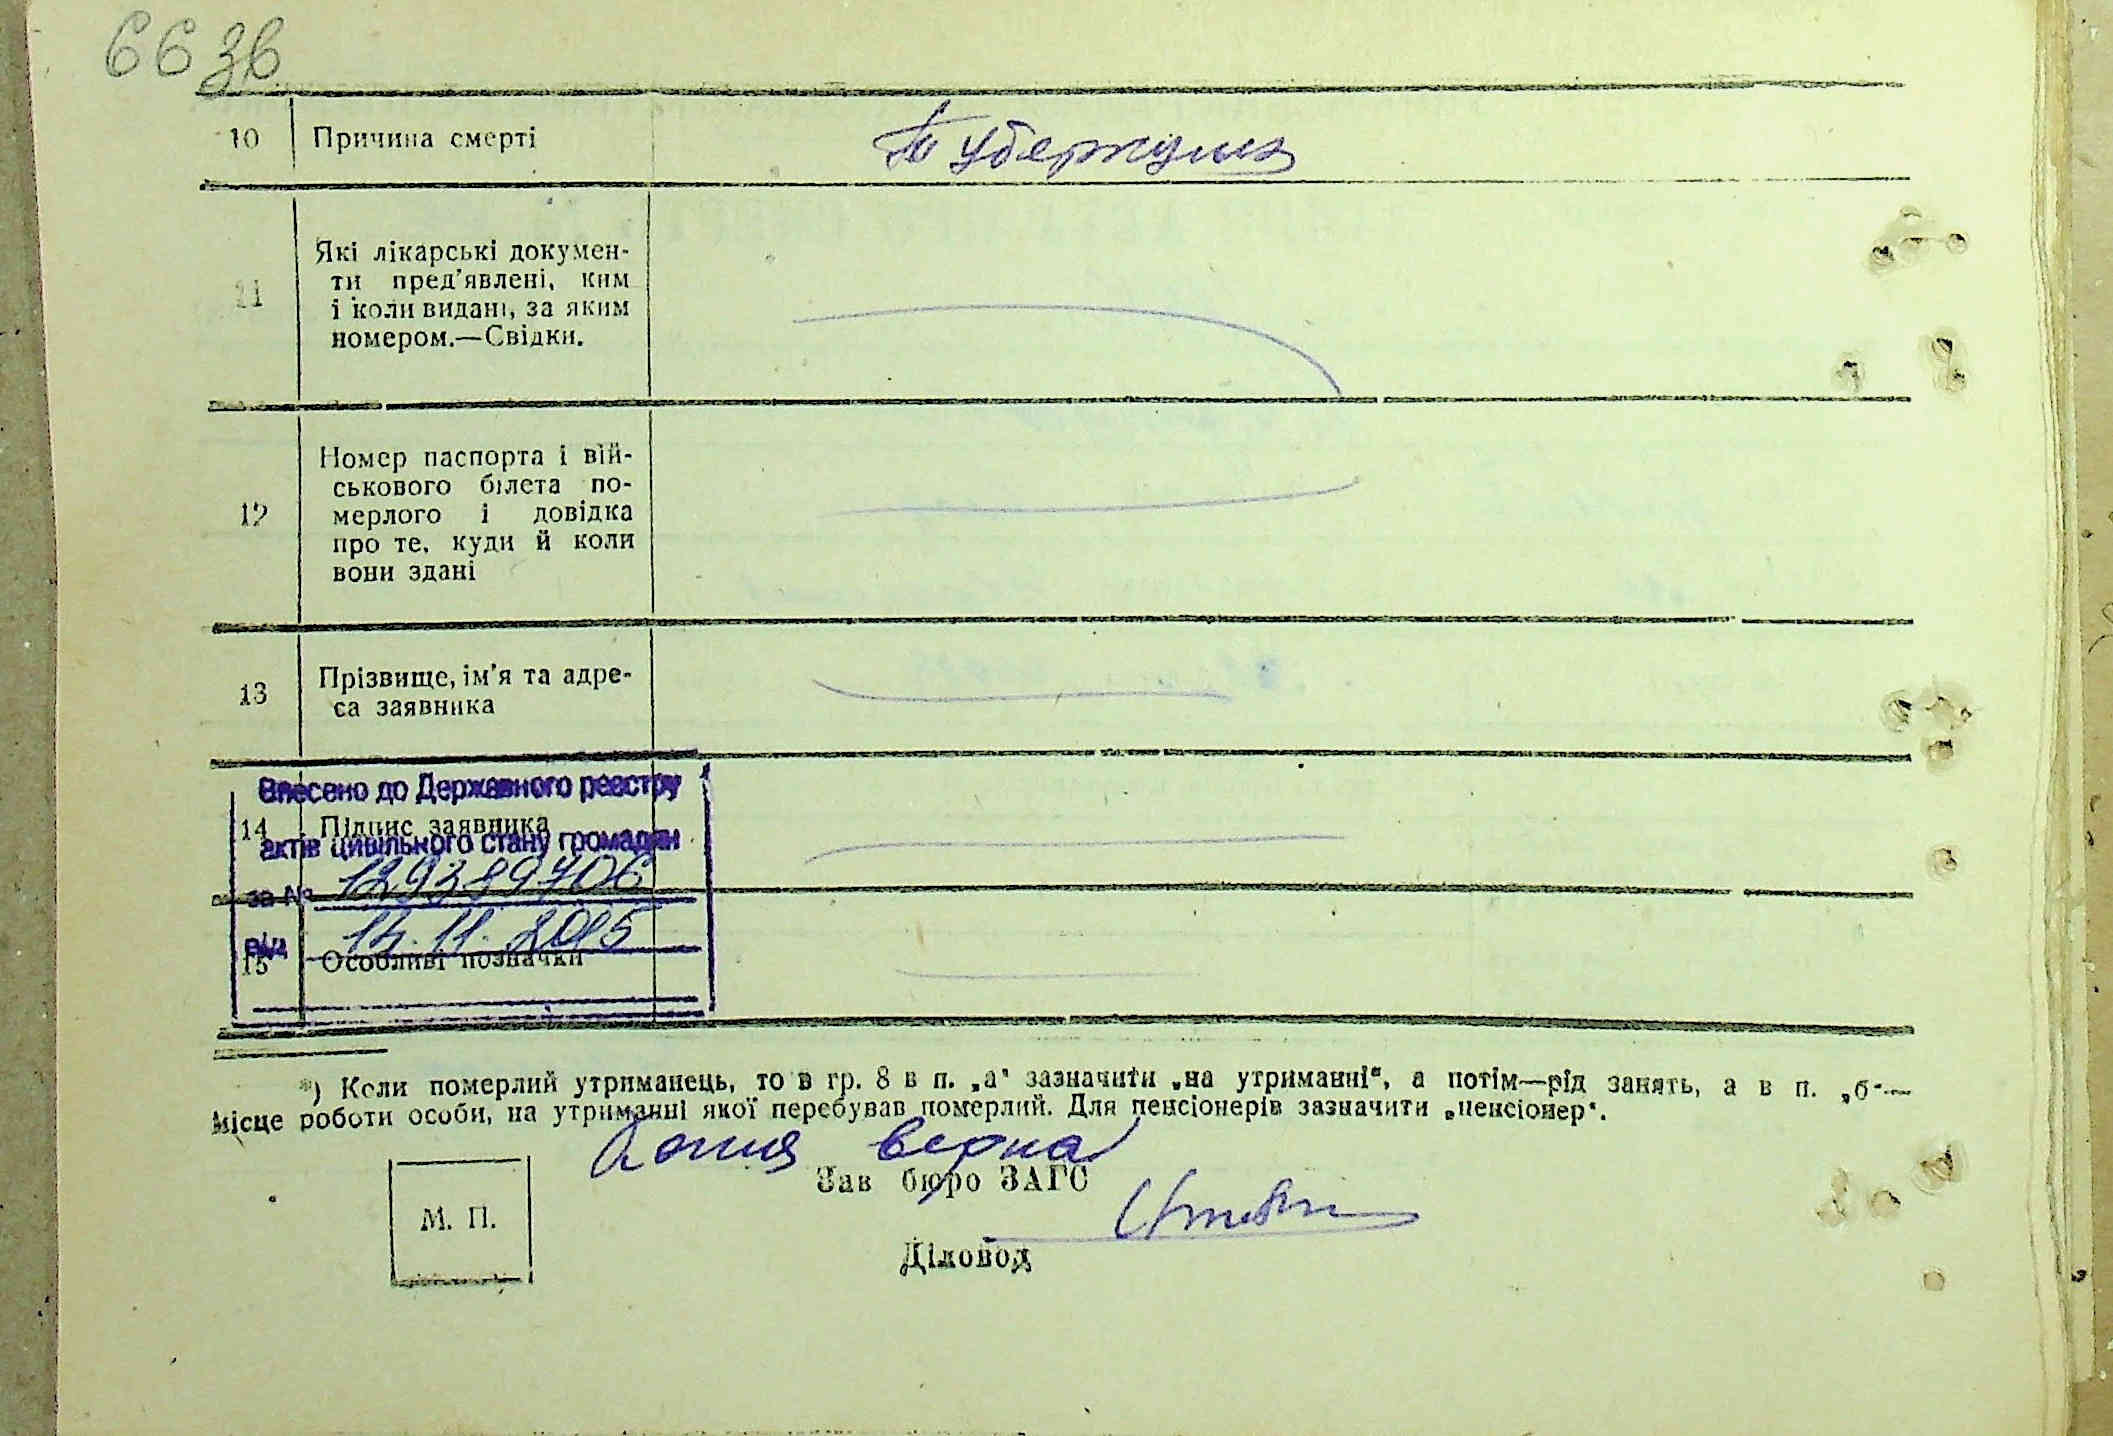 66 зв
10 Причина смерті Туберкульоз
11 Які лікарські докумен-
ти пред'явлені, ким
і коли видані, за яким
номером.—Свідки.
12 Номер паспорта і вій-
ськового білета по-
мерлого і довідка
про те, куди й коли
вони здані
13 Прізвище, ім'я та адре-
са заявника
Внесено до Державного реєстру
14 Підпис заявника
актів цивільного стану громадян
за № 129389706
від 14.11.2015
15 Особливі позначки
*) Коли померлий утриманець, то в гр. 8 в п. „а" зазначити „на утриманні", а потім—рід занять, а в п. „б"—
місце роботи особи, на утриманні якої перебував померлий. Для пенсіонерів зазначити „пенсіонер".
Копия верна
Зав бюро ЗАГС
М. П.
Діловод